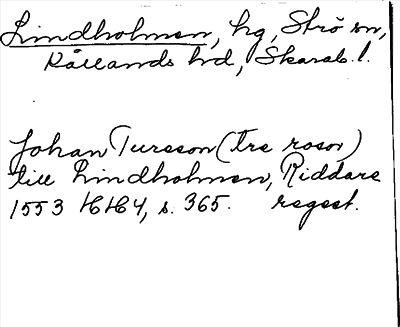 Lindholmen, hg, Strö sn,
Kållands hd, Skarab. l.
Johan Tursson (tre rosor)
till Lindholmen, Riddare
1553 HH4, s. 365. regest.